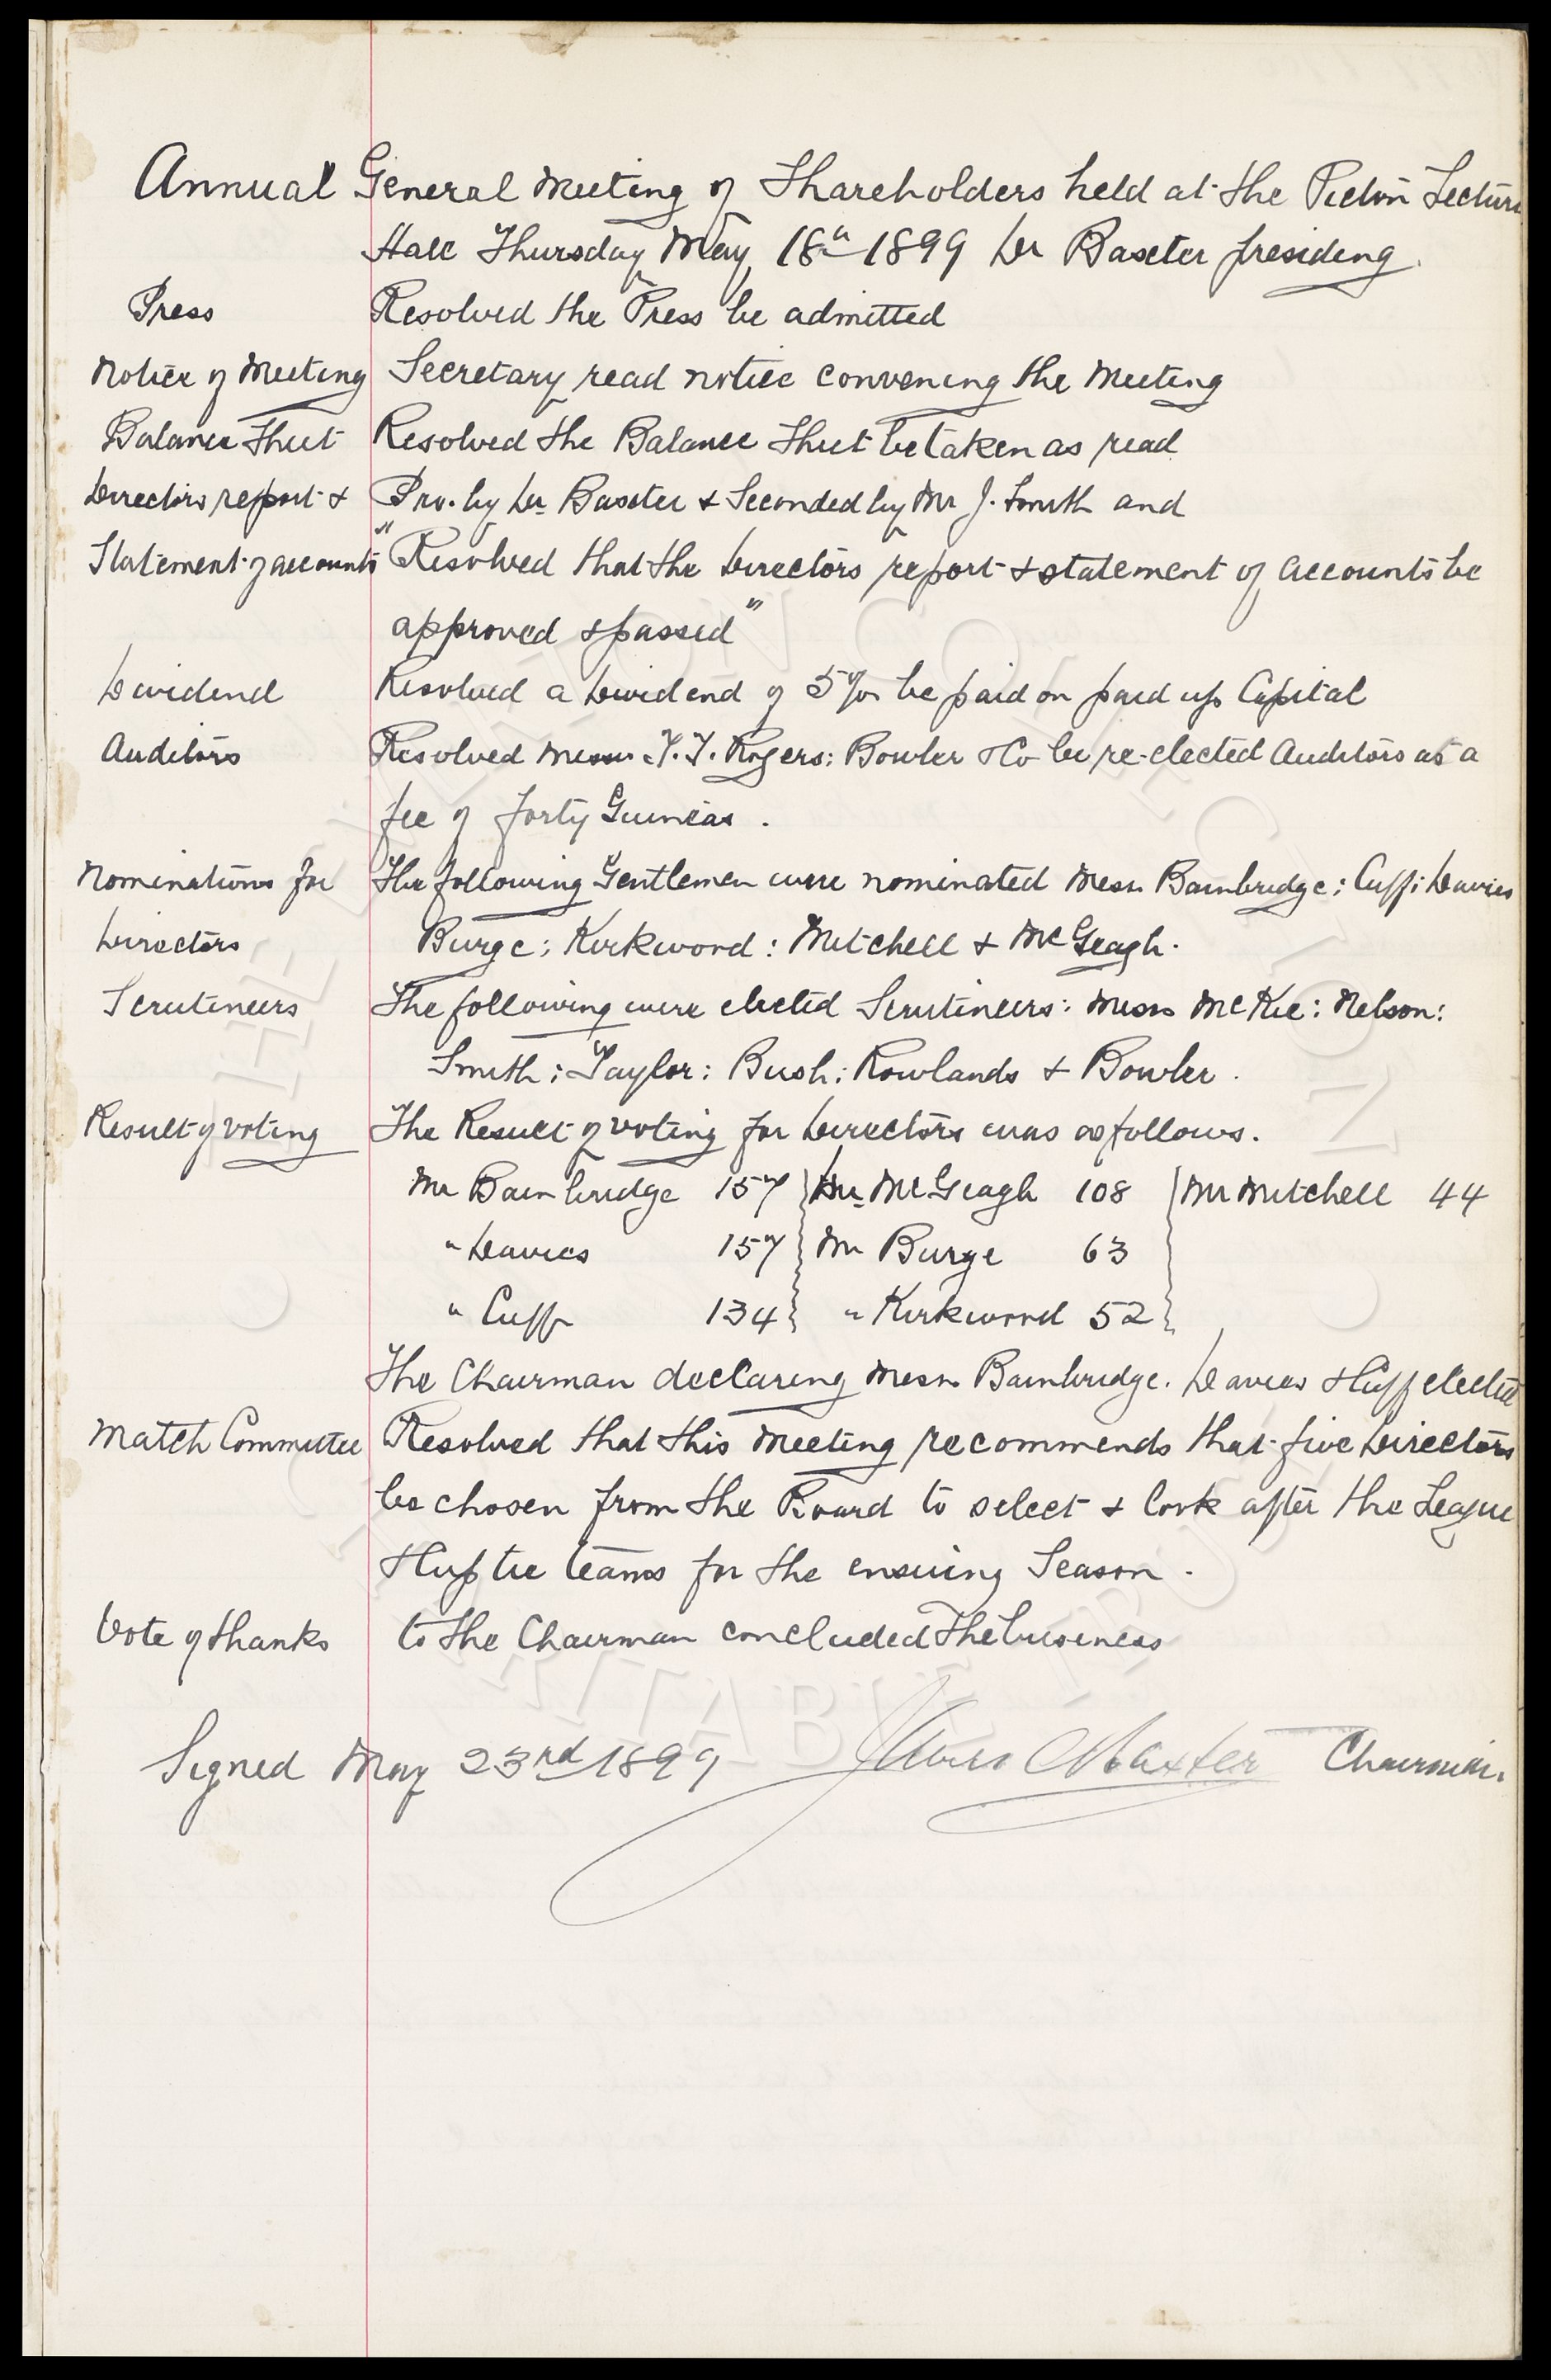 Annual General Meeting of Shareholders held at the Picton Lecture
Hall Thursday May 18th 1899 Dr Baxter presiding.
Press Resolved the Press be admitted
Notice of Meeting Secretary read notice convening the Meeting
Balance Sheet Resolved the Balance Sheet be taken as read
Directors report & Pro. by Dr Baxter & Seconded by Mr J. Smith and
Statement of accounts "Resolved that the Directors report & statement of accounts be
approved & passed"
Dividend Resolved a Dividend of 5% be paid on paid up Capital
Auditors Resolved Messrs T. T. Rogers: Bowler & Co be re-elected Auditors at a
fee of forty Guineas.
Nominations for The following Gentlemen were nominated Messrs Bainbridge: Cuff: Davies
Directors Burge: Kirkwood: Mitchell & McGeagh.
Scrutineers The following were elected Scrutineers: Messrs McKie: Nelson:
Smith: Taylor: Bush: Rowlands & Bowler.
Result of voting The Result of voting for Directors was as follows.
Mr Bainbridge 157 } Dr McGeagh 108 } Mr Mitchell 44
" Davies 157 } Mr Burge 63
" Cuff 134 } " Kirkwood 52 }
The Chairman declaring Messrs Bainbridge. Davies & Cuff elected
Match Committee Resolved that this Meeting recommends that five Directors
be chosen from the Board to select & look after the League
& Cup tie teams for the ensuing Season.
Vote of thanks to the Chairman concluded the business
Signed May 23rd 1899 James C Baxter Chairman.